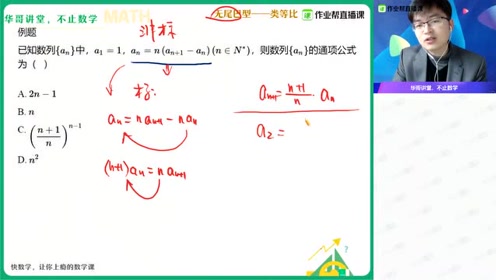 华哥讲堂，不止数学
MATH
无尾巴型——类等比
作业帮直播课
例题
非标
已知数列{aₙ}中，a₁ = 1，aₙ = n(aₙ₊₁ − aₙ)(n ∈ N*)，则数列{aₙ}的通项公式
为（ ）
A. 2n − 1
B. n
C. ((n+1)/n)ⁿ⁻¹
D. n²
标
aₙ = n aₙ₊₁ − n aₙ
(n+1)aₙ = n aₙ₊₁
aₙ₊₁ = (n+1)/n · aₙ
a₂ =
华哥讲堂，不止数学
快数学，让你上瘾的数学课